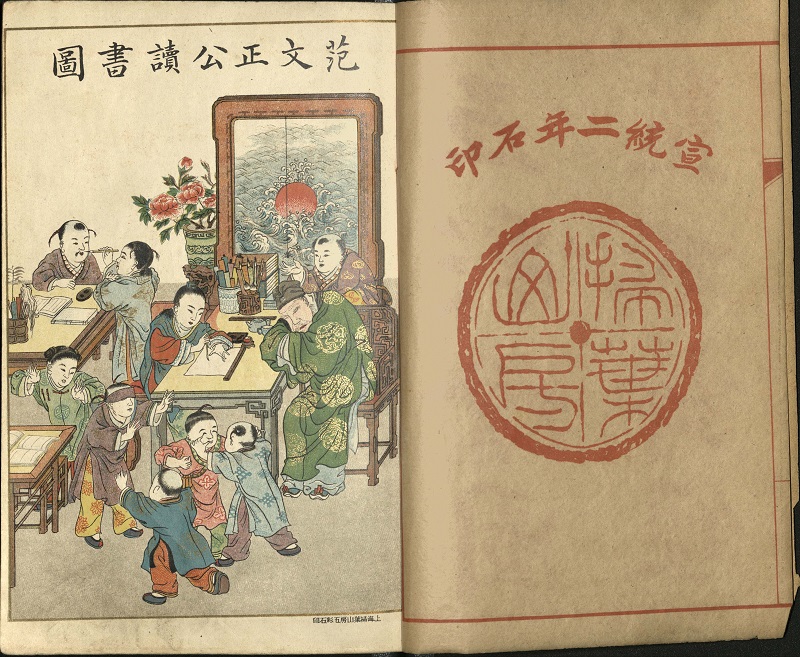 宣統二年石印
掃葉
山房
范文正公讀書圖
上海掃葉山房五彩石印